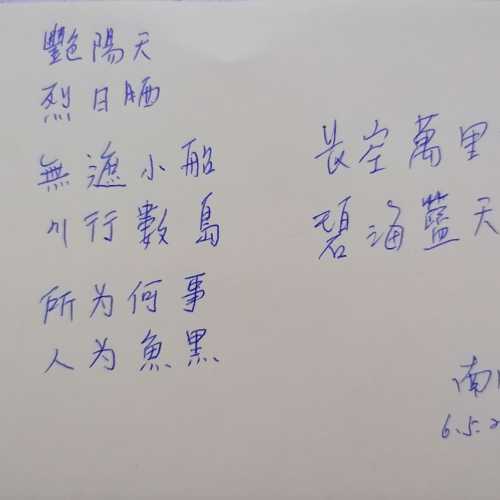 艷陽天
烈日晒
無遮小船
川行數島
所为何事
人为魚黑
長空萬里
碧海藍天
南
6.5.2